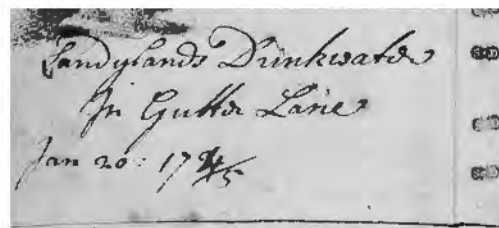 Sandylands Drinkwater
In Gutter Lane
Jan 20: 174/5